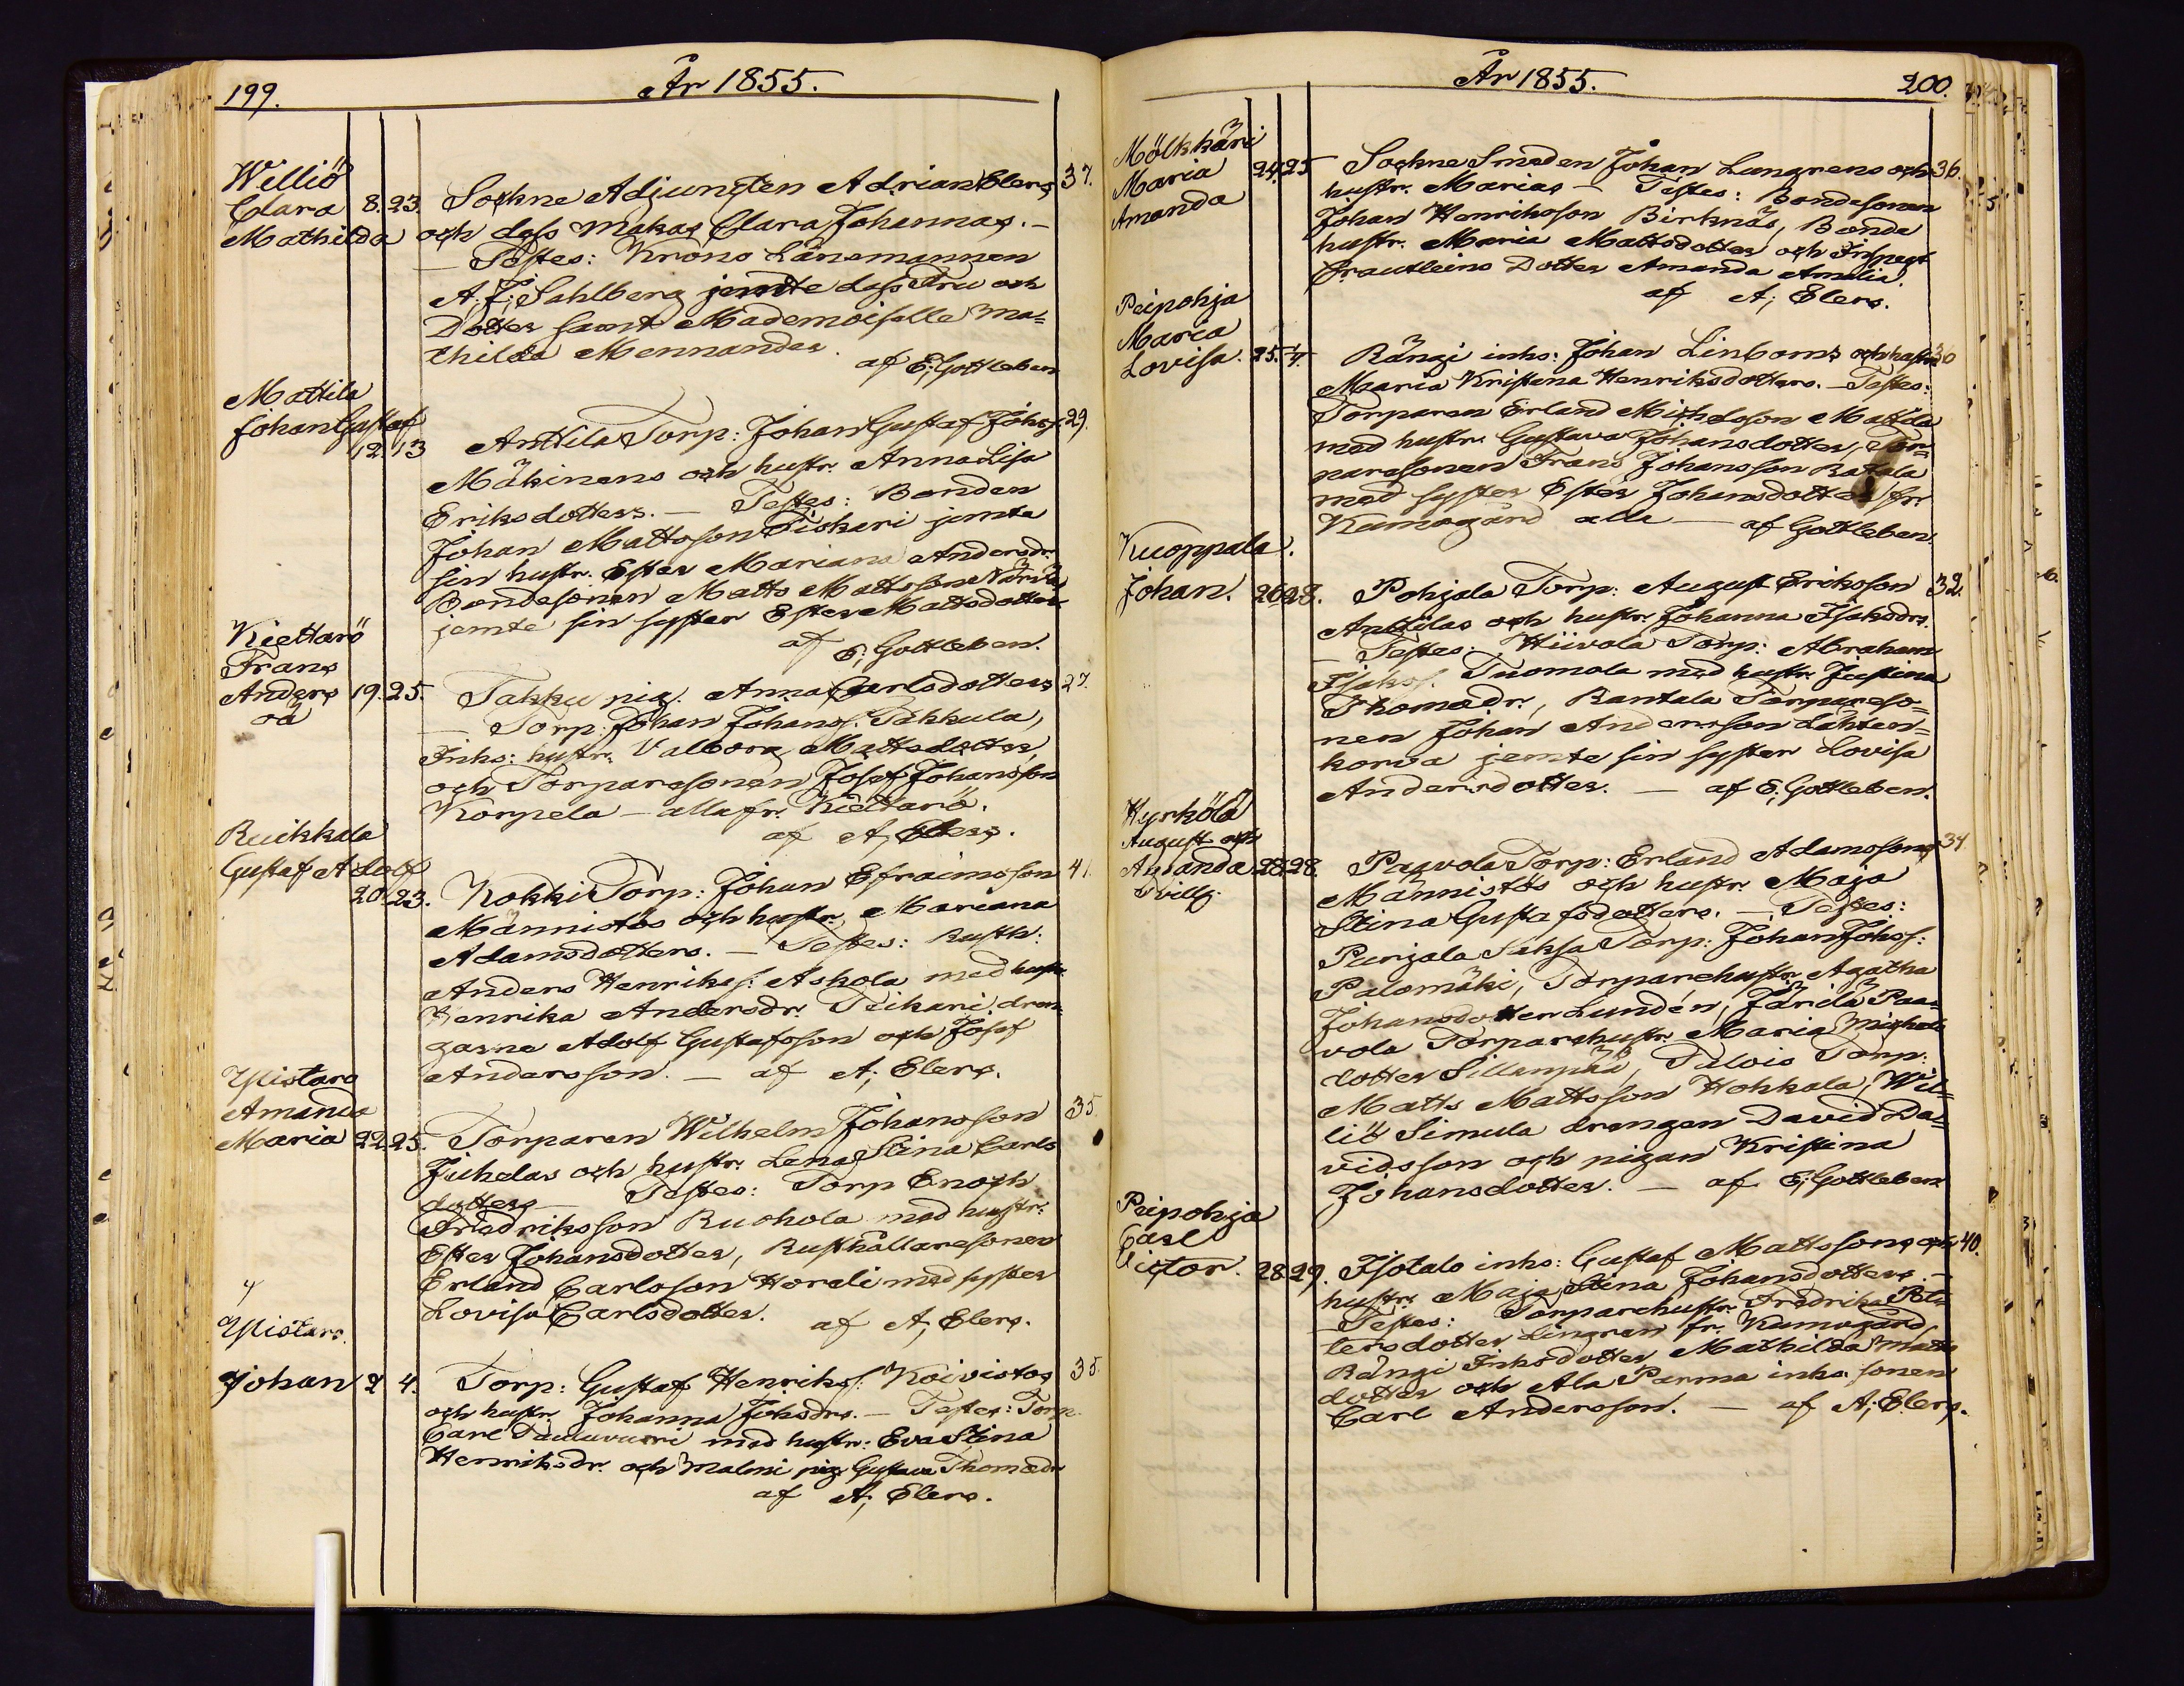 199.
År 1855.
Williö
Clara 8. 23. Sockne Adjuncten Adrian Elers 37.
Mathilda och dess makas Clara Johannas. –
– Testes: Krono Länsmannen
A. F. Sahlberg jemte dess Fru och
Dotter samt Mademoiselle Ma=
thilda Mennander.
af E; Gottleben
Mattila
Johan Gustaf
12. 13 Anttila Torp: Johan Gustaf Johss. 29.
Mäkinens och hustr. Anna Lisa
Eriksdotters. – Testes: Bonden
Johan Mattsson Tiskari jemte
sin hustr. Ester Mariana Andersdr.
Bondesonen Matts Mattsson
jemte sin syster Ester Mattsdotter
af E; Gottleben.
Kiettarö
Frans
Anders 19. 25. Takku pig. Anna Carlsdotters 27.
oä
– Torp. Johan Johanss. Takkula,
Inhs: hustr. Valborg Mattsdotter,
och Torparesonen Josef Johansson
Korpela – alla fr. Kiettarö.
af A; Elers.
Ruikkala
Gustaf Adolf
20. 23. Kokki Torp: Johan Efraimsson 41.
Männistös och hustr. Mariana
Adamsdotters. – Testes: Rusth:
Anders Henrikss: Askola med hustr.
Henrika Andersdr. Peikari dren
garne Adolf Gustafsson och Josef
Andersson. – af A; Elers.
Ylistaro
Amanda
Maria 22. 25. Torparen Wilhelm Johansson 35.
Juhelas och hustr. Lena Stina Carls
dotters – Testes: Torp Enoch
Fredriksson Ruohola med hustr:
Ester Johansdotter, Rusthållaresonen
Erland Carlsson Horeli med syster
Lovisa Carlsdotter. af A; Elers.
Ylistaro.
Johan 2 4. Torp: Gustaf Henrikss: Koivistos 35.
och hustr. Johanna Johsdrs. – Testes: Torp.
Carl med hustr: Eva Stina
Henriksdr. och Malmi pig. Gustava Thomædr
af A; Elers.
År 1855.
200.
Mölkkäri
Maria 24. 25 Sockne Smeden Johan Lungrens och 36.
Amanda
hustr. Marias – Testes: Bondesonen
Johan Henriksson Birknäs, Bonde
hustr. Maria Mattsdotter och Inspect
Trautleins Dotter Amanda Amalia.
af A; Elers.
Peipohja
Maria
Lovisa. 25. 4. Rängi inhs: Johan Linboms och hustr. 30
Maria Kristina Henriksdotters. – Testes:
Torparen Erland Michelsson Mattila
med hustr. Gustava Johansdotter, Tor=
paresonen Frans Johansson Ratala
med syster Ester Johansdotter fr.
Kumogård alla – af Gottleben.
Kuoppala.
Johan. 26 28. Pohjala Torp: August Eriksson 32.
Anttilas och hustr. Johanna Isaksdrs.
– Testes: Hiivola Torp: Abraham
Isakss. Tuomola med hustr. Justina
Thomædr., Rantala Torpareso=
nen Johan Andersson Lähteen=
korva jemte sin syster Lovisa
Andersdotter. – af E; Gottleben.
Hyrkölä
August och
Amanda 28 28. Paavola Torp: Erland Adamssons 34
Tvill.
Männistös och hustr. Maja
Stina Gustafsdotters. – Testes:
Purjala Saksa Torp: Johan Johss:
Palomäki, Torparehustr. Agatha
Johansdotter Lundén, Järilä Paa=
vola Torparehustr. Maria Michels
dotter Sillanpää, Pelois Torp:
Matts Mattsson Hohkala, Wil=
liö Simula drengen David Da=
vidsson och pigan Kristina
Johansdotter. – af E; Gottleben
Peipohja
Carl
Victor. 28 29. Isotalo inhs: Gustaf Mattssons och 40.
hustr. Maja Stina Johansdotters. –
– Testes: Torparehustr. Fredrika Pet=
tersdotter Lingren fr. Kumogård
Rängi Inhsdotter Mathilda Matts
dotter och Ala Parma inhs. sonen
Carl Andersson. – af A; Elers.